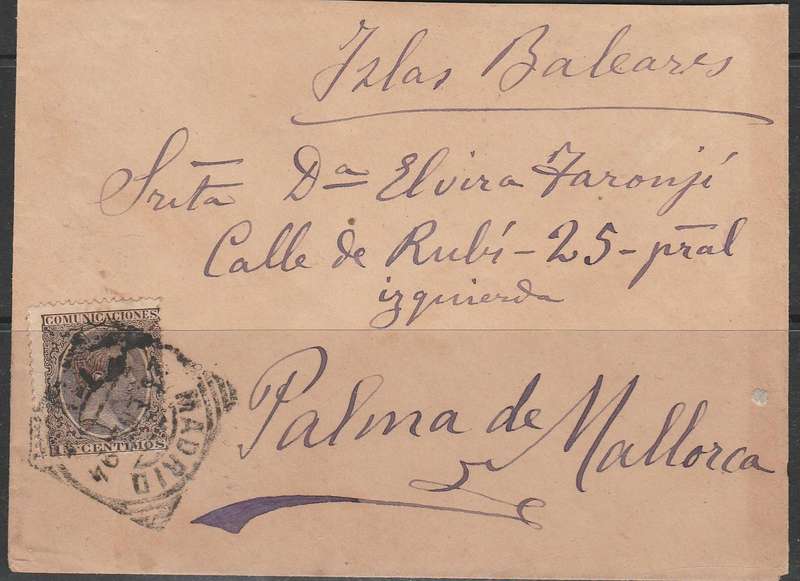 Islas Baleares
Srita Dª Elvira Taronjí
Calle de Rubí - 25 - pral
izquierda
Palma de Mallorca
COMUNICACIONES
CENTIMOS
MADRID
94